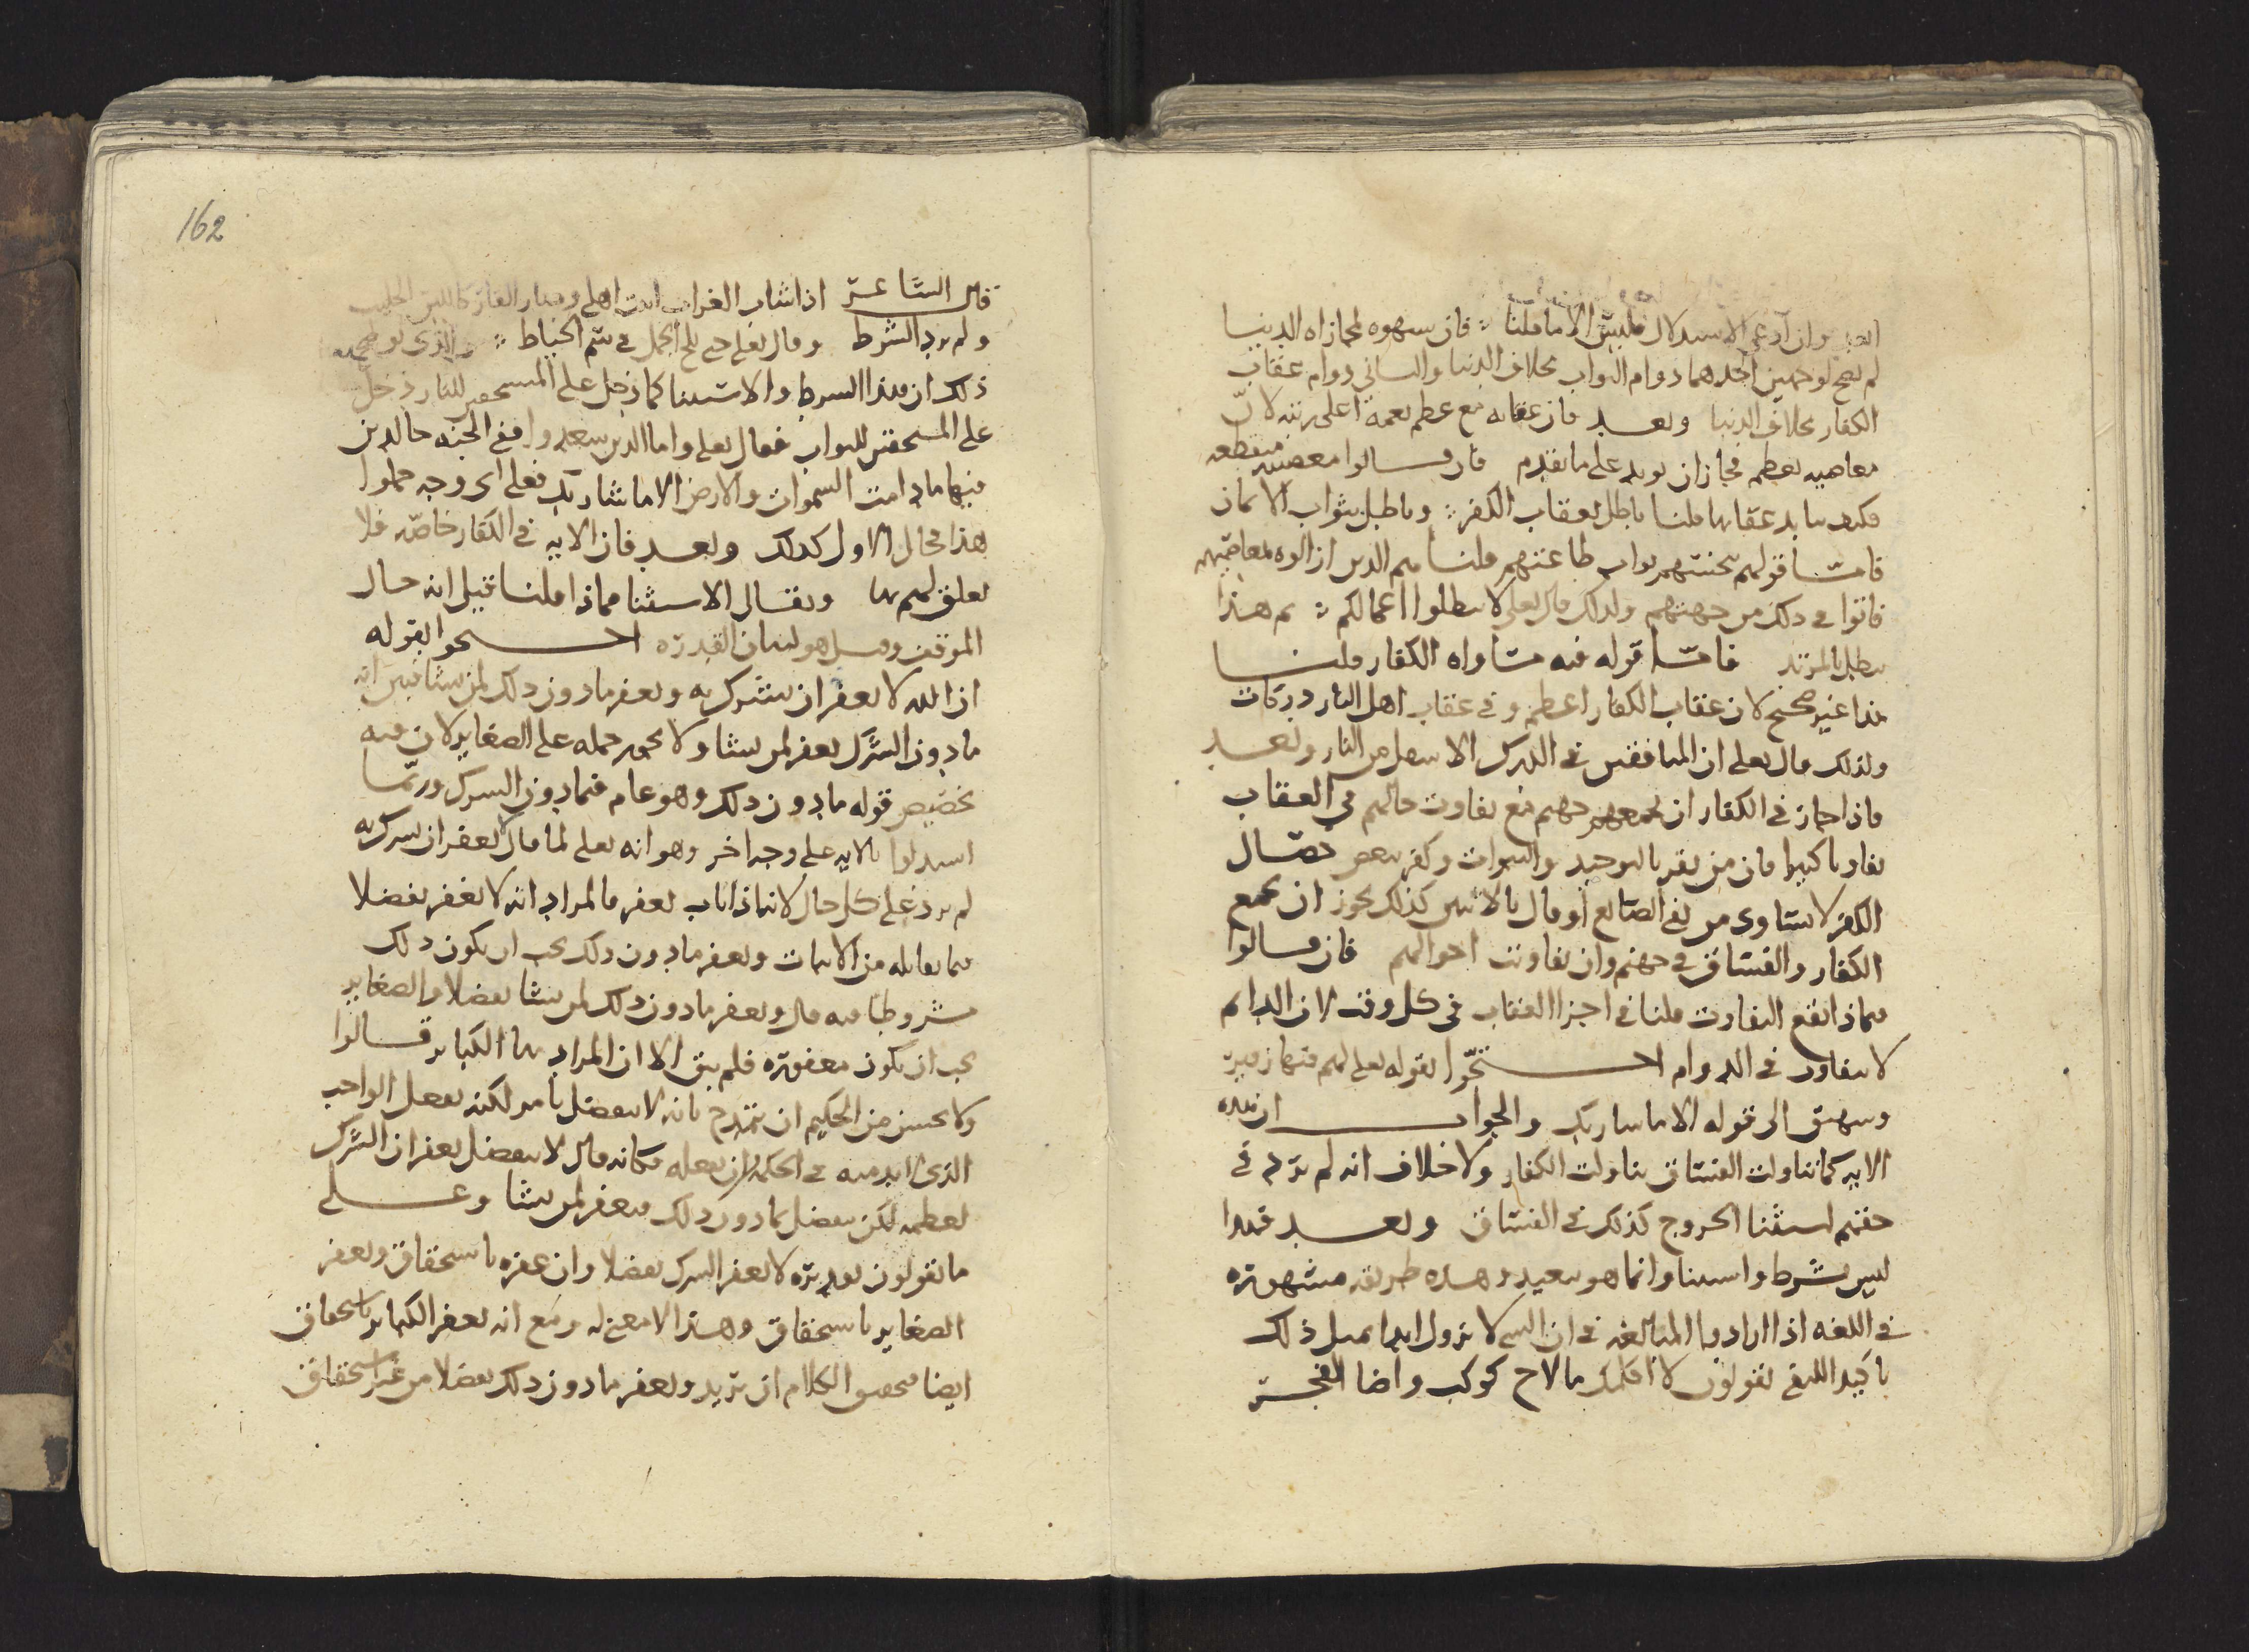 وان ادعى الاستدلال فليس الا ما قلنا فان سهوه لمجازاه الدنيا
لم يصح لوجهين احدهما دوام الثواب بخلاف الدنيا والثاني دوام عقاب
الكفار بخلاف الدنيا وبعد فان عقابه مع عظم نعمه اعلى رتبه لان
معاصيه تعظم فجاز ان يزيد على ما تقدم فان قالوا معصيته منقطعه
فكيف يتابد عقابها قلنا باطل بعقاب الكفر وباطل بثواب الايمان
فاما قولهم بخستهم ثواب طاعتهم قلنا هم الذين ازالوه بمعاصيهم
فاتوا في ذلك من جهتهم ولذلك قال تعلى لا تبطلوا اعمالكم ثم هذا
يبطل بالمرتد فاما قوله فيه مساواه الكفار قلنا
هذا غير صحيح لان عقاب الكفار اعظم وفي عقاب اهل النار دركات
ولذلك قال تعلى ان المنافقين في الدرك الاسفل من النار وبعد
فاذا جاز في الكفار ان تجمعهم جهنم مع تفاوت حالهم في العقاب
تفاوتا كبيرا فان من يقر بالتوحيد والنبوات وكفر ببعض خصال
الكفر لا يساوي من نفى الصانع او قال بالاثنين كذلك يجوز ان يجمع
الكفار والفساق في جهنم وان تفاوتت احوالهم فان قالوا
فبماذا يقع التفاوت قلنا في اجزا العقاب في كل وقت لان الدايم
لا يتفاوت في الدوام احتجوا بقوله تعلى لهم فيها زفير
وشهيق الى قوله الا ما شا ربك والجواب ان هذه
الايه كما تناولت الفساق تناولت الكفار ولا خلاف انه لم يرد في
حقهم استثنا الخروج كذلك في الفساق وبعد فهذا
ليس بشرط واستثنا وانما هو تبعيد وهذه طريقه مشهوره
في اللغه اذا ارادوا المبالغه في ان الشي لا يزول ابدا بمثل ذلك
تاكيد النفي يقولون لا اكلمك ما لاح كوكب واضا الفجر
162
قال الشاعر اذا شاب الغراب اتيت اهلي وصار القار كاللبن الحليب
ولم يرد الشرط وقال تعلى حتى يلج الجمل في سم الخياط والذي يوضح
ذلك ان هذا الشرط والاستثنا كما دخل على المستحقين للنار دخل
على المستحقين للثواب فقال تعلى واما الذين سعدوا ففي الجنه خالدين
فيها ما دامت السموات والارض الا ما شا ربك فعلى اي وجه حملوا
هذا فحال الاول كذلك وبعد فان الايه في الكفار خاصه فلا
تعلق لهم بها ويقال الاستثنا مماذا قلنا قيل انه حال
الموقف وقيل هو لبيان القدره احتجوا بقوله
ان الله لا يغفر ان يشرك به ويغفر ما دون ذلك لمن يشا فبين انه
ما دون الشرك يغفر لمن يشا ولا يجوز حمله على الصغاير لان فيه
تخصيص قوله ما دون ذلك وهو عام فيما دون الشرك وربما
استدلوا بالايه على وجه اخر وهو انه تعلى لما قال لا يغفر ان يشرك به
لم يرد على كل حال لانه اذا تاب يغفر فالمراد انه لا يغفر تفضلا
فما يقابله من الاثبات ويغفر ما دون ذلك يجب ان يكون ذلك
مشروطا فيه قال ويغفر ما دون ذلك لمن يشا تفضلا والصغاير
يجب ان يكون مغفوره فلم يبق الا ان المراد بها الكباير قالوا
ولا يحسن من الحكيم ان يتمدح بانه لا يتفضل بامر لكنه يفعل الواجب
الذي لا بد منه في الحكمه ان يفعله فكانه قال لا يتفضل بغفران الشرك
لعظمه لكن يتفضل بما دون ذلك فيغفر لمن يشا وعلى
ما تقولون تقديره لا يغفر الشرك تفضلا وان غفره باستحقاق ويغفر
الصغاير باستحقاق وهذا لا معنى له ومع انه يغفر الكباير باستحقاق
ايضا فحصول الكلام ان يريد ويغفر ما دون ذلك تفضلا من غير استحقاق